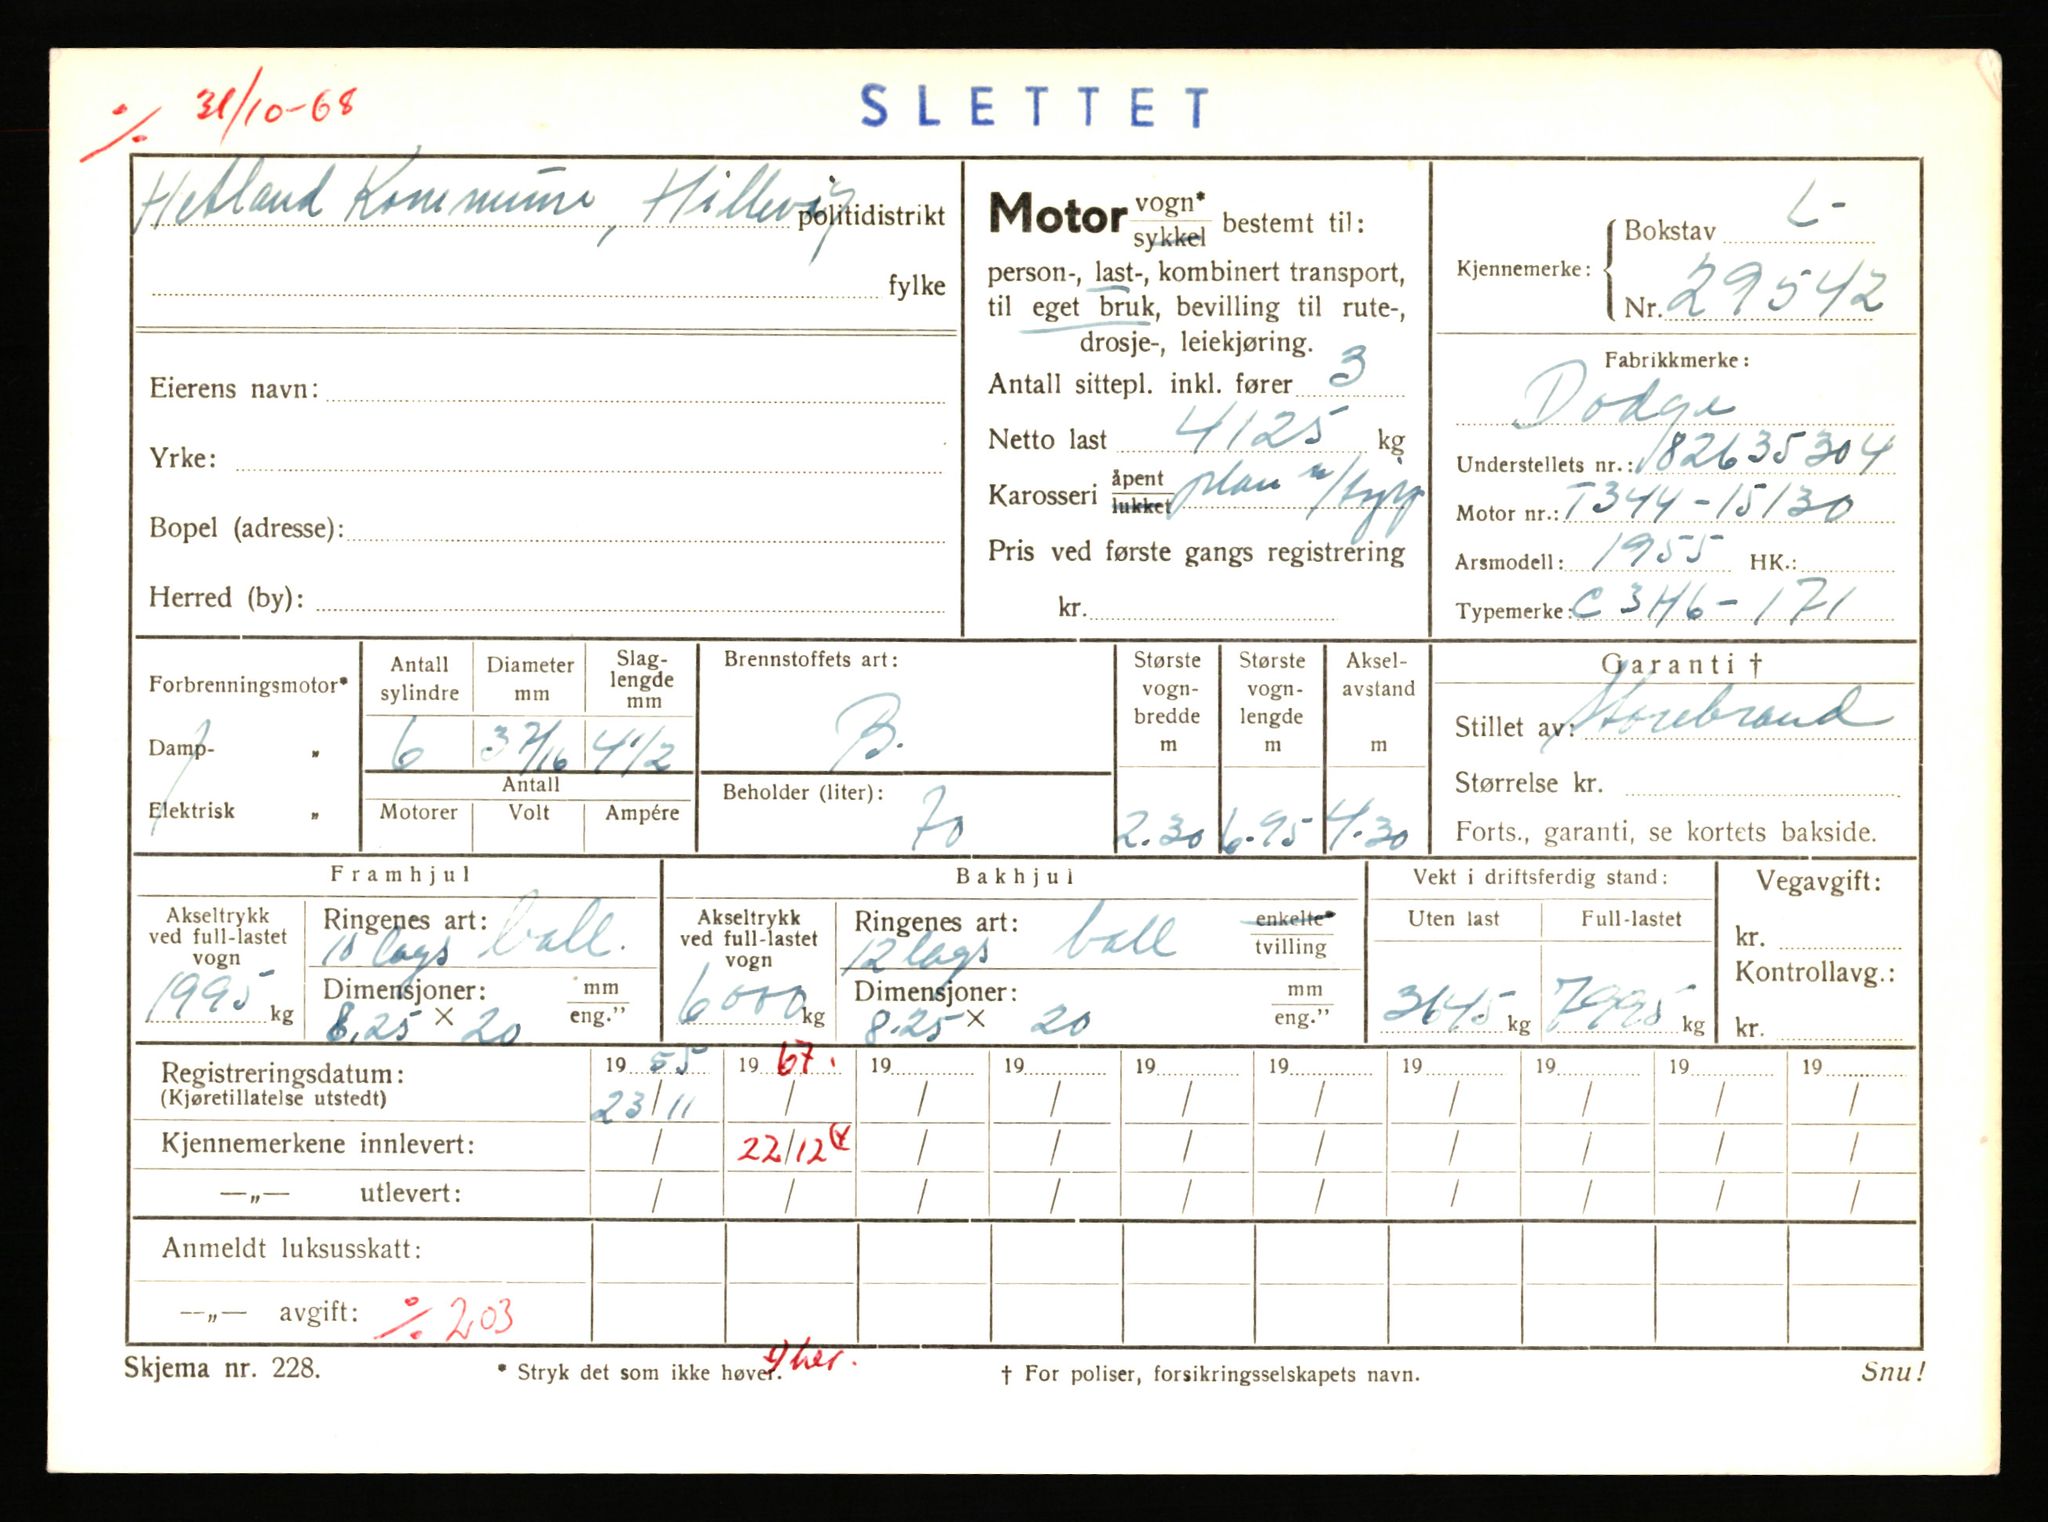 % 31/10-68
SLETTET
Hetland Kommune, Hillevåg politidistrikt
fylke
Eierens navn:
Yrke:
Bopel (adresse):
Herred (by):
Motor vogn* sykkel bestemt til:
person-, last-, kombinert transport,
til eget bruk, bevilling til rute-,
drosje-, leiekjøring.
Antall sittepl. inkl. fører 3
Netto last 4125 kg
Karosseri åpent lukket plan m/tipp
Pris ved første gangs registrering
kr.
Kjennemerke: Bokstav L-
Nr. 29542
Fabrikkmerke:
Dodge
Understellets nr.: 82635304
Motor nr.: T344-15130
Arsmodell: 1955 HK.:
Typemerke: C3H6-171
Forbrenningsmotor*
Damp- „
Elektrisk „
Antall sylindre 6
Diameter mm 3 7/16
Slag-lengde mm 4 1/2
Antall
Motorer Volt Ampére
Brennstoffets art:
B.
Beholder (liter): 70
Største vogn-bredde m 2.30
Største vogn-lengde m 6.95
Aksel-avstand m 4.30
Garanti †
Stillet av: Storebrand
Størrelse kr.
Forts., garanti, se kortets bakside.
Framhjul
Akseltrykk ved full-lastet vogn 1995 kg
Ringenes art: 10 lags ball.
Dimensjoner: mm eng."
8.25 × 20
Bakhjul
Akseltrykk ved full-lastet vogn 6000 kg
Ringenes art: 12 lags ball enkelte* tvilling
Dimensjoner: mm eng."
8.25 × 20
Vekt i driftsferdig stand:
Uten last 3645 kg
Full-lastet 7995 kg
Vegavgift:
kr.
Kontrollavg.:
kr.
Registreringsdatum: 19 55 19 67. 19 19 19 19 19 19 19 19
(Kjøretillatelse utstedt) 23/11 / / / / / / / / /
Kjennemerkene innlevert: / 22/12 / / / / / / / /
—„— utlevert: / / / / / / / / / /
Anmeldt luksusskatt:
—„— avgift: % 203
Skjema nr. 228.
* Stryk det som ikke høver.
her.
† For poliser, forsikringsselskapets navn.
Snu!